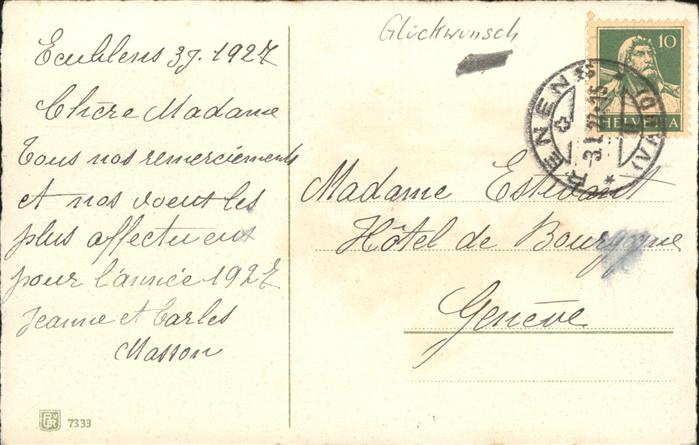 Glückwunsch
10
HELVETIA
RENENS (VAUD)
-3.I.27
Ecublens 3 J. 1927
Chère Madame
Tous nos remerciements
et nos voeux les
plus affectueux
pour l'année 1927
Jeanne et Carles
Masson
Madame Estevant
Hôtel de Bourgogne
Genève
7333